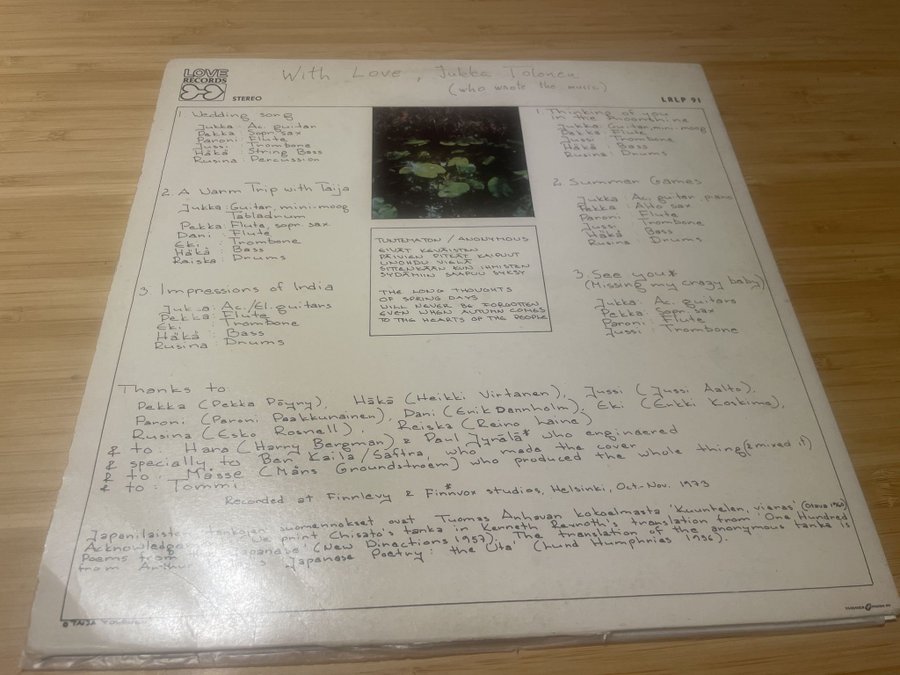 LOVE
RECORDS
STEREO
With Love, Jukka Tolonen
(who wrote the music)
LRLP 91
1. Wedding song
Jukka: Ac. guitar
Pekka: Sopr. sax
Paroni: Flute
Jussi: Trombone
Häkä: String Bass
Rusina: Percussion
2. A Warm Trip with Taija
Jukka: Guitar, mini-moog
Tabladrum
Pekka: Flute, sopr. sax
Dani: Flute
Eki: Trombone
Häkä: Bass
Reiska: Drums
3 Impressions of India
Jukka: Ac./El. guitars
Pekka: Flute
Eki: Trombone
Häkä: Bass
Rusina Drums
TUNTEMATON / ANONYMOUS
EIVÄT KEVÄISTEN
PÄIVIEN PITKÄT KAIPUUT
UNOHDU VIELÄ
SITTENKÄÄN KUN IHMISTEN
SYDÄMIIN SAAPUU SYKSY
THE LONG THOUGHTS
OF SPRING DAYS
WILL NEVER BE FORGOTTEN
EVEN WHEN AUTUMN COMES
TO THE HEARTS OF THE PEOPLE
1. Thinking of you
in the moonshine
Jukka: Guitar, mini-moog
Pekka: Flute
Jussi: Trombone
Häkä: Bass
Rusina: Drums
2. Summer Games
Jukka: Ac. guitar, piano
Pekka: Alto sax
Paroni: Flute
Jussi: Trombone
Häkä: Bass
Rusina: Drums
3. See you*
(Missing my crazy baby)
Jukka: Ac. guitars
Pekka: Sopr. sax
Paroni: Flute
Jussi: Trombone
Thanks to
Pekka (Pekka Pöyry), Häkä (Heikki Virtanen), Jussi (Jussi Aalto),
Paroni (Paroni Paakkunainen), Dani (Erik Dannholm), Eki (Erkki Koskimo),
Rusina (Esko Rosnell), Reiska (Reino Laine)
& to: Hara (Harry Bergman) & Paul Jyrälä* who engineered
& specially to Ben Kaila/Säftra, who made the cover
& to: Måsse (Måns Groundstroem) who produced the whole thing (& mixed it)
& to: Tommi
Recorded at Finnlevy & Finnvox* studios, Helsinki, Oct-Nov. 1973
suomennokset ovat Tuomas Anhavan kokoelmasta 'Kuuntelen, vieras' (Otava 1960)
We print Chisato's tanka in Kenneth Rexroth's translation from 'One Hundred
Poems from Japanese' (New Directions 1957). The translation of the anonymous tanka is
from Arthur Japanese Poetry: the Uta' (Lund Humphries 1936).
© TAIJA TOLONEN